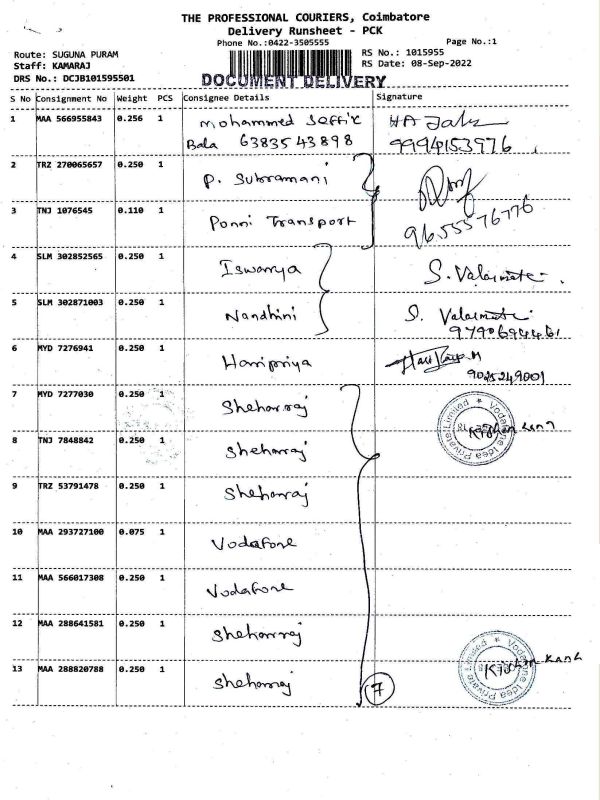 THE PROFESSIONAL COURIERS, Coimbatore
Delivery Runsheet - PCK
Phone No.:0422-3505555 Page No.:1
Route: SUGUNA PURAM RS No.: 1015955
Staff: KAMARAJ RS Date: 08-Sep-2022
DRS No.: DCJB101595501 DOCUMENT DELIVERY
S No Consignment No Weight PCS Consignee Details Signature
1 MAA 566955843 0.256 1 Mohammed
Bala 6383543898 9994153976
2 TRZ 270065657 0.250 1 P. Subramani
3 TNJ 1076545 0.110 1 Ponni Transport 9655576776
4 SLM 302852565 0.250 1 Iswarya
5 SLM 302871003 0.250 1 Nandhini
9790694461
6 MYD 7276941 0.250 1 Haripriya
9025249001
7 MYD 7277030 0.250 1 Sheharraj Vodafone Idea Private Limited
8 TNJ 7848842 0.250 1 Sheharraj
9 TRZ 53791478 0.250 1 Sheharraj
10 MAA 293727100 0.075 1 Vodafone
11 MAA 566017308 0.250 1 Vodafone
12 MAA 288641581 0.250 1 Sheharraj
13 MAA 288820788 0.250 1 Sheharraj 7 Vodafone Idea Private Limited